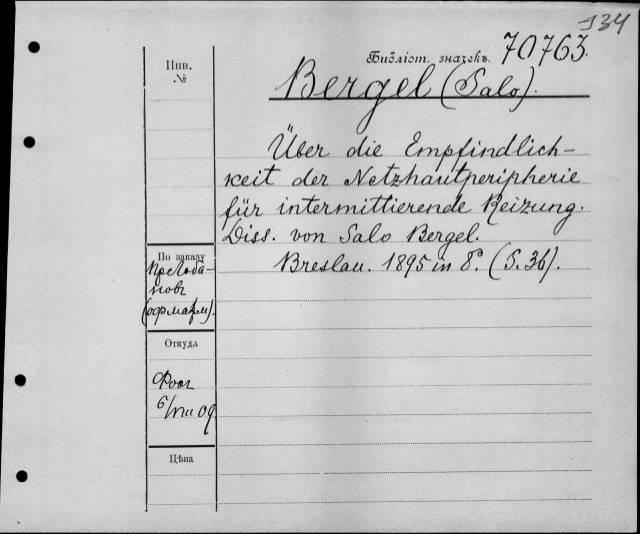 134
Библіот. значекъ. 70763.
Инв.
№
Bergel (Salo).
Über die Empfindlich-
keit der Netzhautperipherie
für intermittierende Reizung.
Diss. von Salo Bergel.
Breslau. 1895 in 8°. (S. 36).
По заказу
новъ
Откуда
Фоок
6/VIII 09
Цѣна